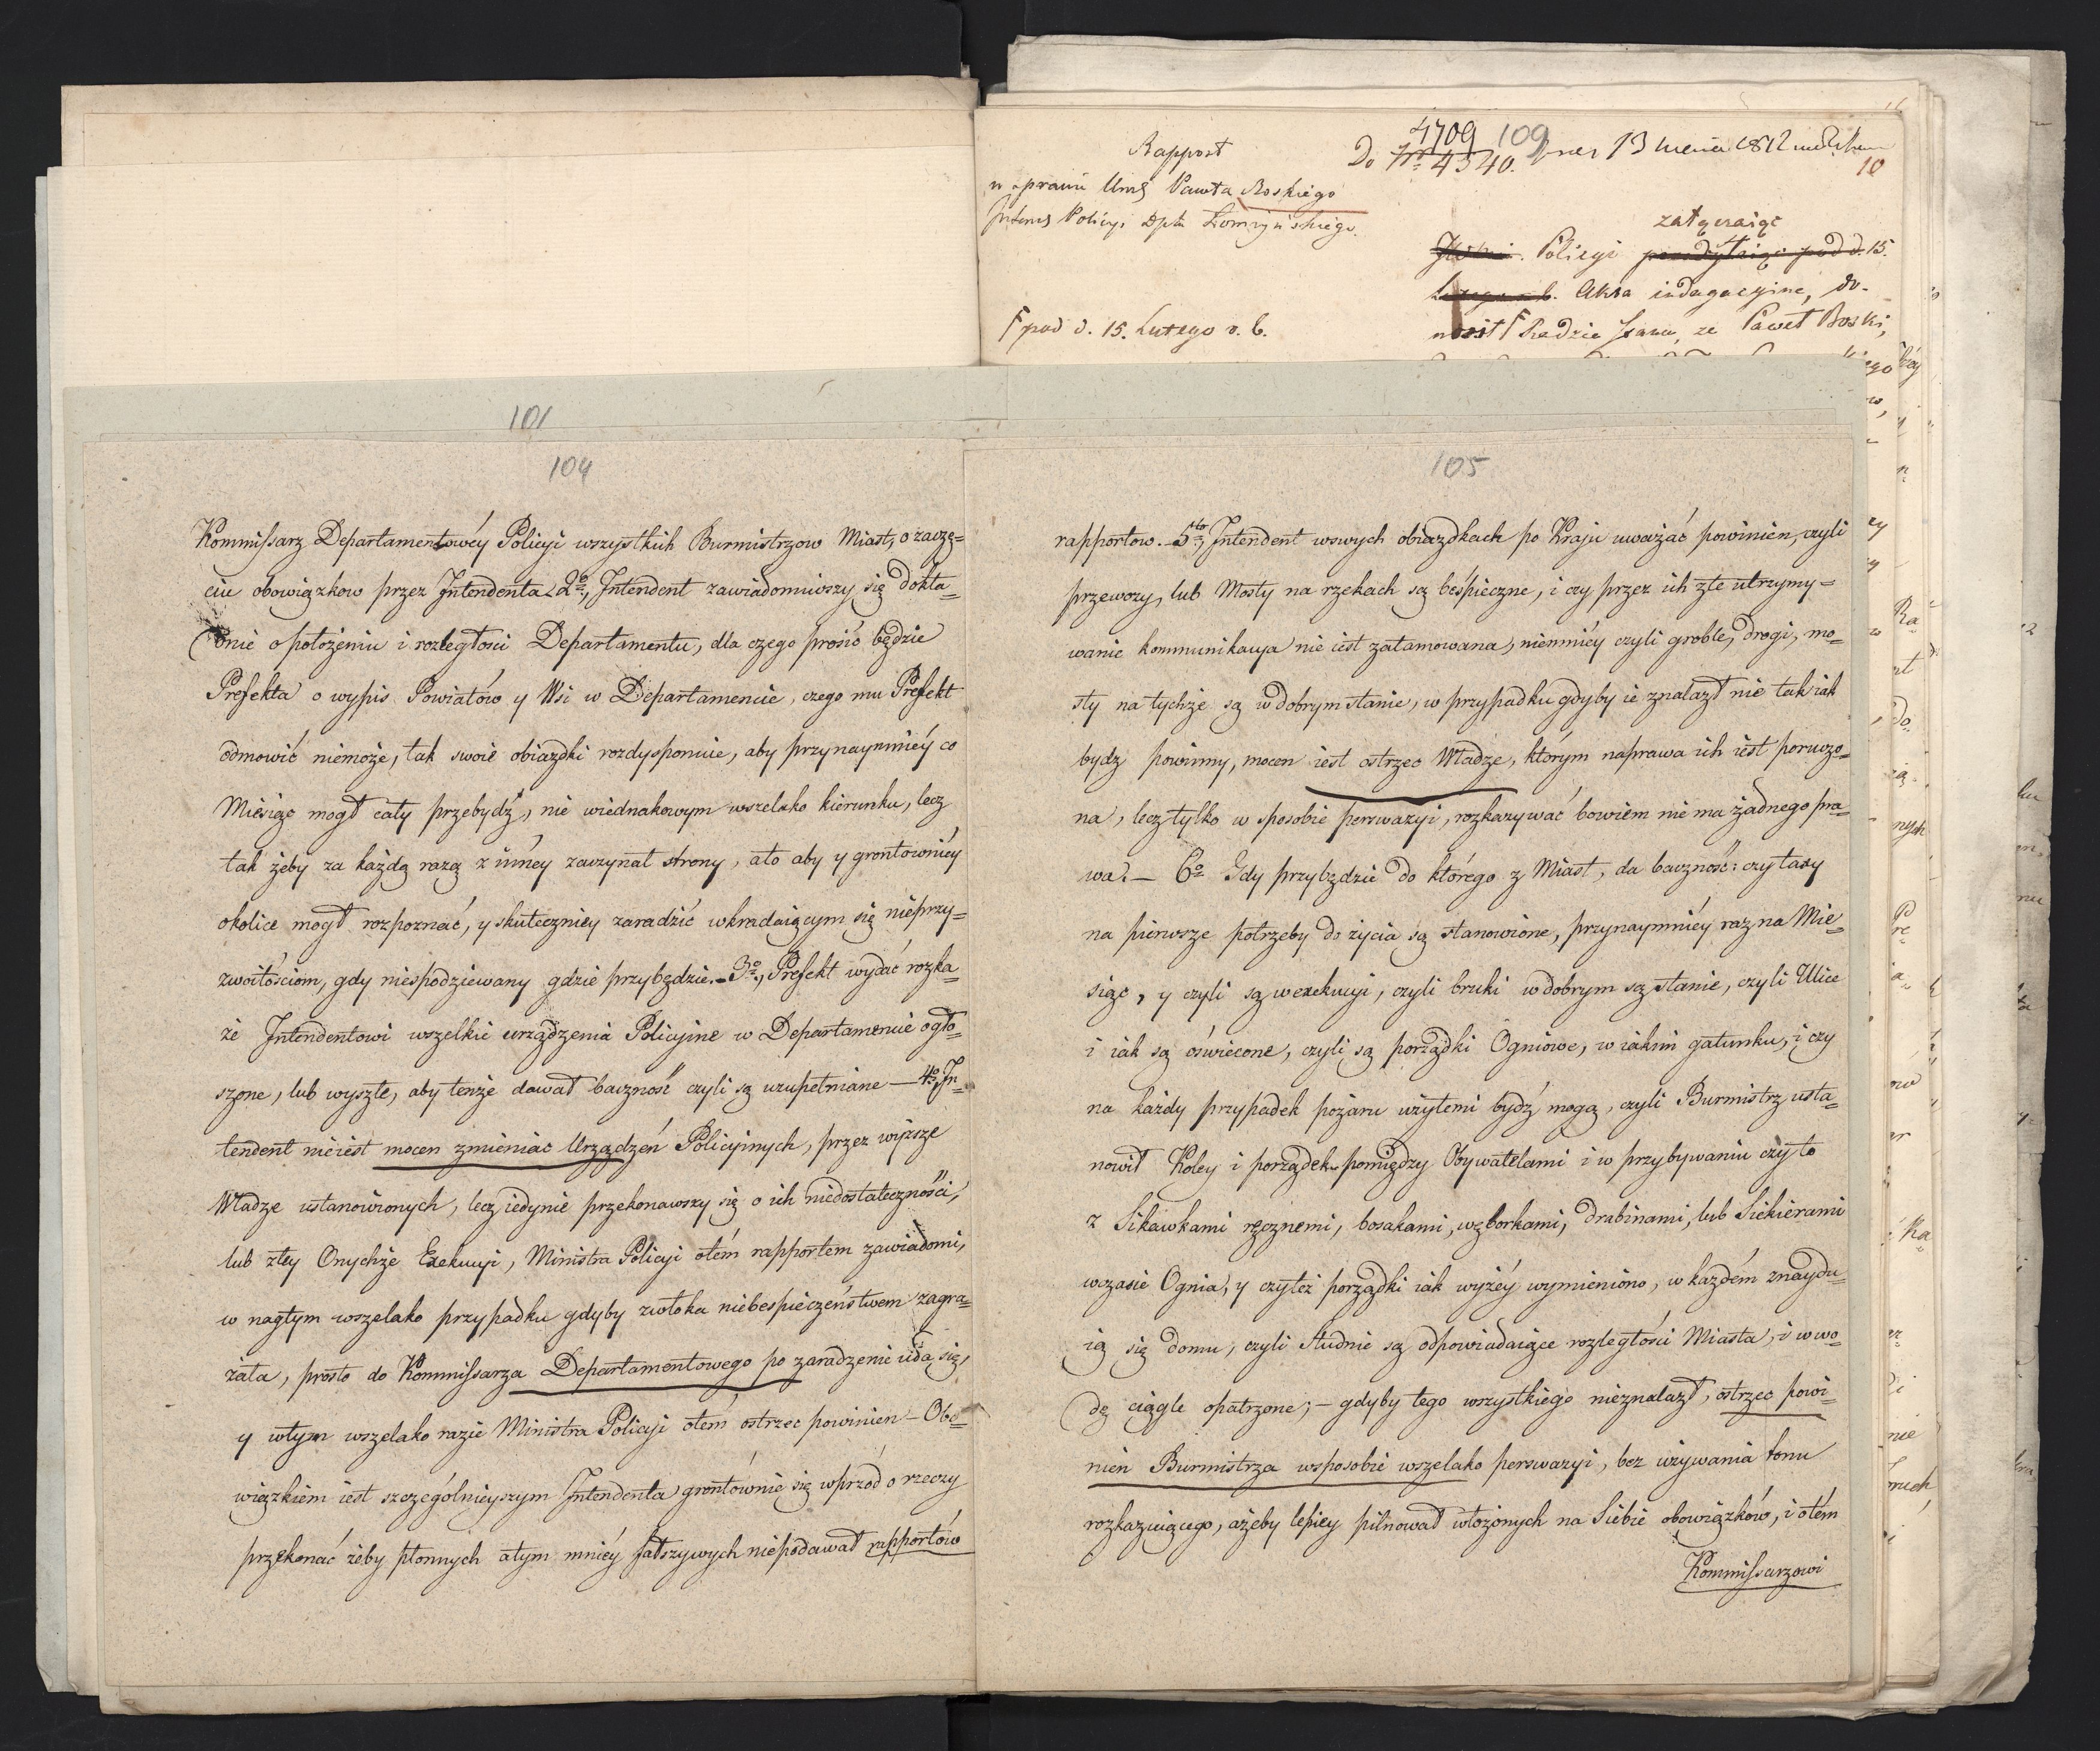 4709 109
Rapport
Do Nro 4340.
10
w sprawie Urneg Pawła Boskiego
Intens Policyi Dptu Łomżyńskiego.
załączaiąc
Policyi
15.
Akta indagacyine, do-
Γ pod d. 15. Lutego r. b.
nosit Γ Radzie Stanu, ze Paweł Boski,
101
104
Kommissarz Departamentowéy Policyi wszystkich Burmistrzow Miast, o zaczę=
ciu obowiązkow przez Intendenta 2o, Intendent zawiadomiwszy się dokła=
dnie o położeniu i rozległości Departamentu, dla czego prosić będzie
Prefekta o wypis Powiatów y Wsi w Departamencie, czego mu Prefekt
odmowić niemoże, tak swoie obiazdki rozdysponuie, aby przynaymniéy co
Miesiąc mogł cały przebydź, nie wiednakowym wszelako kierunku, lecz
tak żeby za każdą razą z inney zaczynał strony, ato aby y grontowniéy
okolice mogł rozpoznać, y skuteczniey zaradzić wkradaiącym się nieprzy=
zwoitościom, gdy niespodziewany gdzie przybędzie.- 3o, Prefekt wydać rozka=
że Intendentowi wszelkie urządzenia Policyine w Departamencie ogło=
szone, lub wyszłe, aby tenże dawał baczność czyli są uzupełniane — 4o, In=
tendent nieiest mocen zmieniac Urządzeń Policyinych, przez wyższe
Władze ustanowionych, lecz iedynie przekonawszy się o ich niedostateczności,
lub złey Onychże Exekucyi, Ministra Policyi otém rapportem zawiadomi,
w nagłym wszelako przypadku gdyby zwłoka niebespieczeństwem zagra=
żała, prosto do Kommissarza Departamentowego po zaradzenie uda się,
y wtym wszelako razie Ministra Policyi otém ostrzec powinien - Obo=
wiązkiem iest szczególnieyszym Intendenta grontównie się wprzód o rzeczy
przekonać żeby płonnych atym mniéy fałszywych niepodawał rapportów
105
rapportow. - 5to, Intendent wswych obiazdkach po Kraju uważać powinien, czyli
przewozy, lub Mosty na rzekach są bespieczne, i czy przez ich złe utrzymy=
wanie kommunikacya nie iest zatamowana, niemniéy czyli groble, drogi, mo=
sty na tychże są w dobrym stanie, w przypadku gdyby ie znalazł nie tak iak
bydz powinny, mocen iest ostrzec Władze, którym naprawa ich iest poruczo=
na, lecz tylko w sposobie perswazyi, rozkazywać bowiem nie ma żadnego pra=
wa. — 6o Gdy przybędzie do którego z Miast, da baczność: czy taxy
na pierwsze potrzeby do życia są stanowione, przynaymniéy raz na Mie=
siąc, y czyli są wexekucyi, czyli bruki w dobrym są stanie, czyli Ulice
i iak są oświecone, czyli są porządki Ogniowe, w iakim gatunku, i czy
na każdy przypadek pożaru użytemi bydź mogą, czyli Burmistrz usta=
nowił Koley i porządek pomiędzy Obywatelami i w przybywaniu czy to
z Sikawkami ręcznemi, bosakami, węborkami, drabinami, lub Siekierami
wczasie Ognia, y czyteż porządki iak wyżéy wymieniono, w każdém znaydu=
ią się domu, czyli Studnie są odpowiadaiące rozległości Miasta, i w wo=
dę ciągle opatrzone; - gdyby tego wszystkiego nieznalazł, ostrzec powi=
nien Burmistrza wsposobie wszelako perswazyi, bez używania tonu
rozkazuiącego, ażeby lepiey pilnował włożonych na Siebie obowiązków, i otém
Kommissarzowi